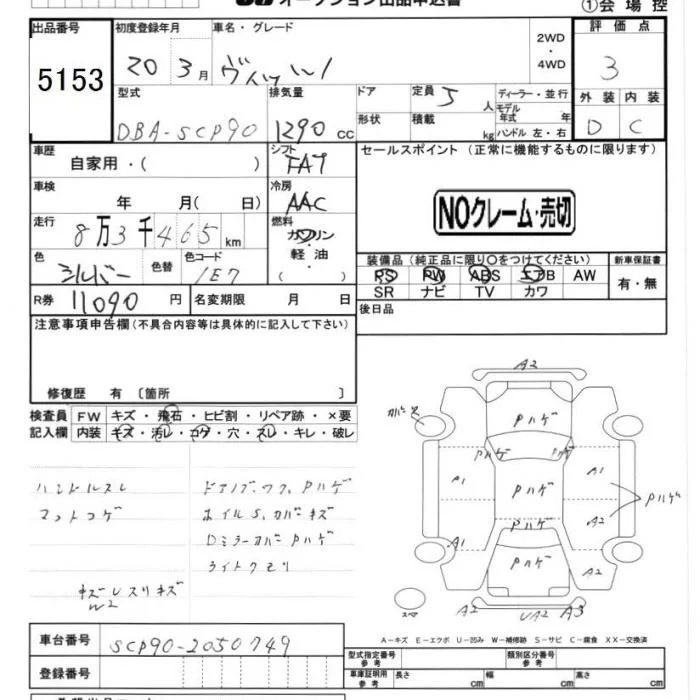 オークション出品申込書
①会場控
出品番号 初度登録年月 車名・グレード 評価点
5153 20 3月 ヴィッツ 2WD・4WD 3
型式 排気量 ドア 定員 5人 ディーラー・並行 外装 内装
DBA-SCP90 1290cc 形状 積載 kg モデル年式 年 ハンドル 左・右 D C
車歴 自家用・( ) シフト FAT セールスポイント(正常に機能するものに限ります)
車検 年 月( 日) 冷房 AAC NOクレーム・売切
走行 8万3千465km 燃料 ガソリン・軽油・( )
色 シルバー 色替 色コード 1E7 装備品(純正品に限り○をつけてください) 新車保証書
PS PW ABS エアB AW 有・無
SR ナビ TV カワ
R券 11090円 名変期限 月 日 後日品
注意事項申告欄(不具合内容等は具体的に記入して下さい)
修復歴 有 〔箇所 〕
検査員 FW キズ・飛石・ヒビ割・リペア跡・×要
記入欄 内装 キズ・汚レ・コゲ・穴・スレ・キレ・破レ
ハンドルスレ ドアノブ.ワク.Pハゲ
マットコゲ ホイルS.カバーキズ
Dミラーカバー Pハゲ
ライトクモリ
A2
Pハゲ
Pハゲ Pハゲ
A1 Pハゲ A1
Pハゲ
Pハゲ A2
A1 Pハゲ A2
A2 UA2 A3
車台番号 SCP90-2050749
A-キズ E-エクボ U-凹み W-補修跡 S-サビ C-腐食 XX-交換済
登録番号 型式指定番号 参考 類別区分番号 参考
車庫証明用 参考 長さ cm 幅 cm 高さ cm